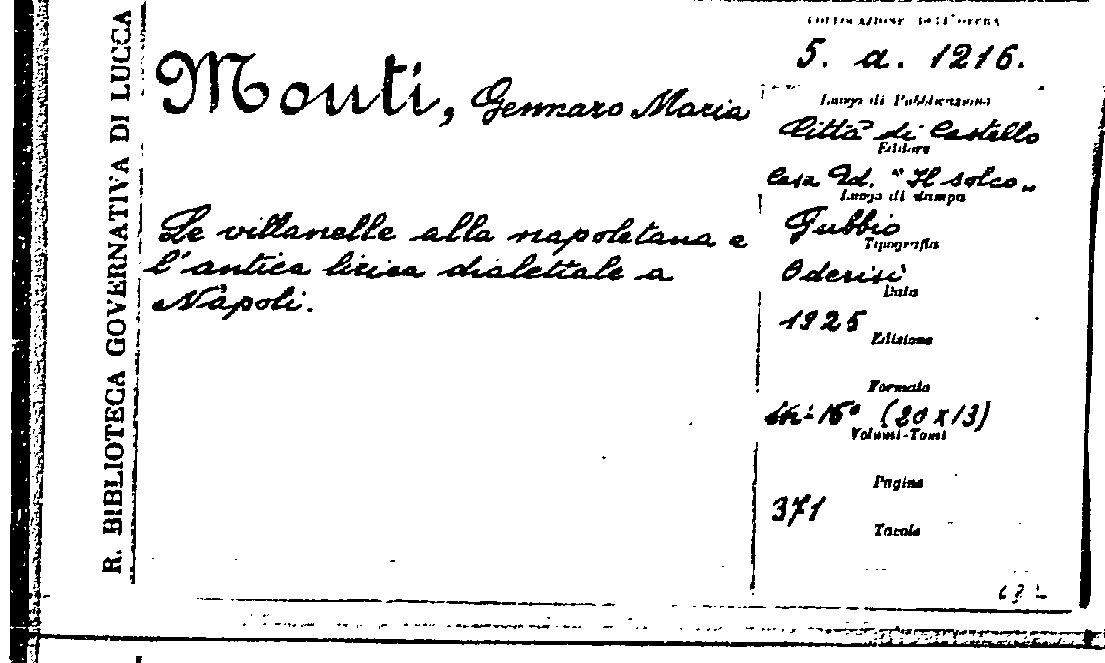 R. BIBLIOTECA GOVERNATIVA DI LUCCA
Monti, Gennaro Maria
Le villanelle alla napoletana e
l'antica lirica dialettale a
Napoli.
COLLOCAZIONE DELL'OPERA
5. a. 1216.
Luogo di Pubblicazione
Città di Castello
Editore
Casa Ed. "Il Solco„
Luogo di stampa
Gubbio
Tipografia
Oderisi
Data
1925
Edizione
Formato
in-16° (20x13)
Volumi-Tomi
Pagine
371
Tavole